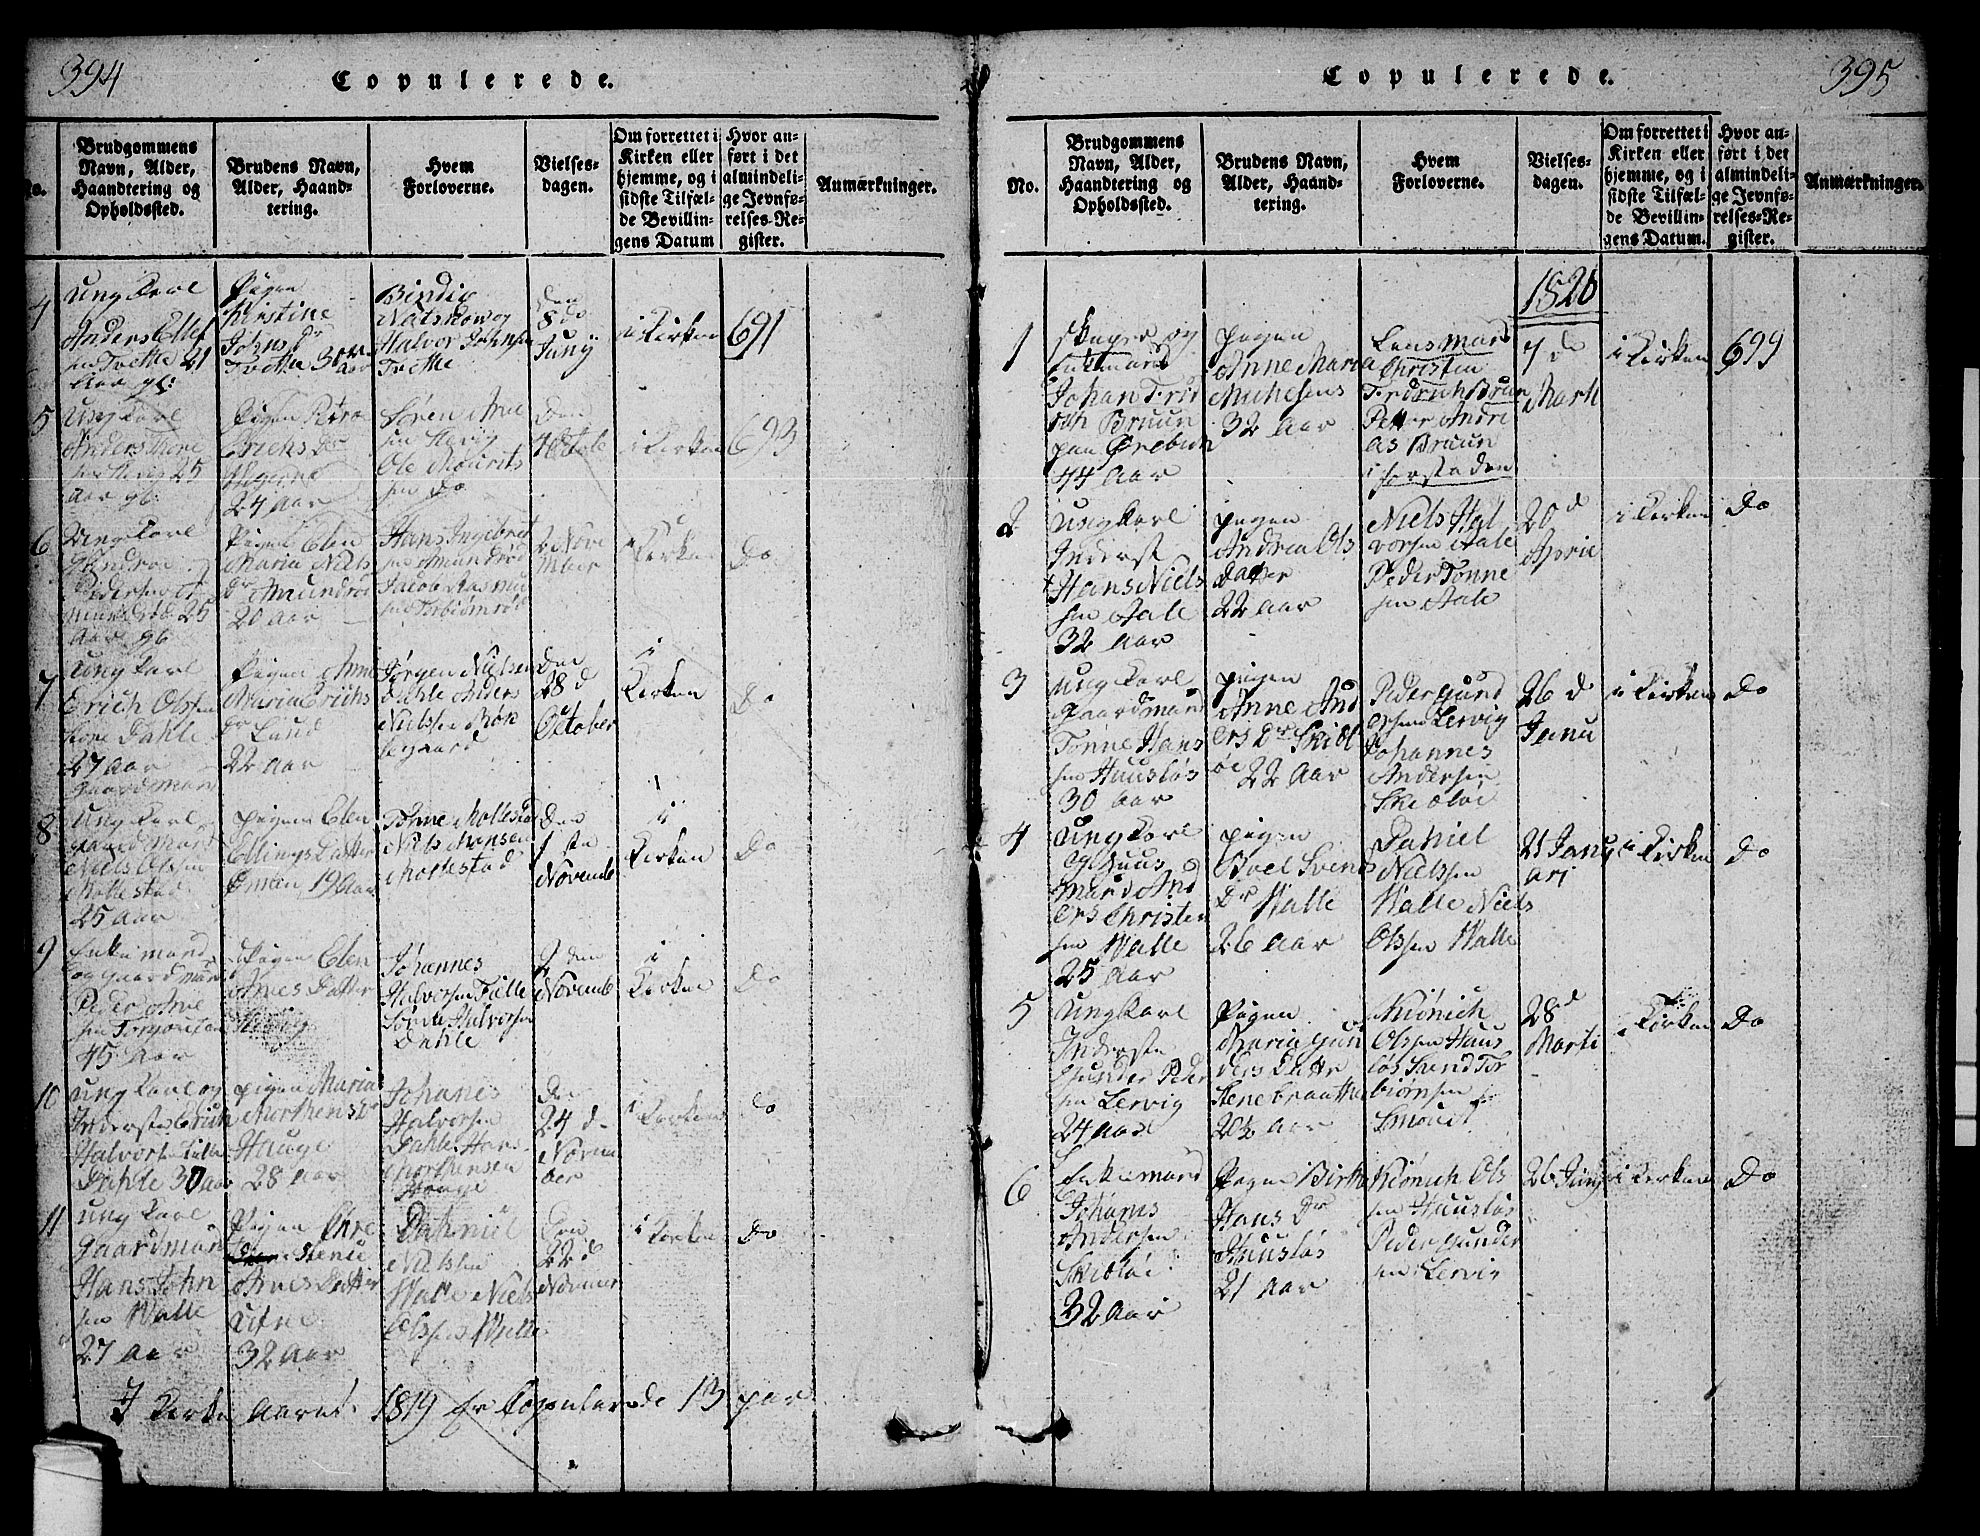 394
Copulerede.
No.
Brudgommens
Navn, Alder,
Haandtering og
Opholdssted.
Brudens Navn,
Alder, Haand-
tering.
Hvem
Forloverne.
Vielses-
dagen.
Om forrettet i
Kirken eller
hjemme, og i
sidste Tilfæl-
de Bevillin-
gens Datum
Hvor an-
ført i det
almindeli-
ge Jevnfø-
relses-Re-
gister.
Anmærkninger.
4
Ung Karl
Anders Ellef
sen Tvette 21
Aar gl:
Pigen
Kirstine
Johns Dr
Tvette 30 Aar
Halvor Johnsen
Tvette
den
8 do
Junÿ
i Kirken
691
5
Ung Karl
Anders
25
Aar gl:
Pigen
Erichs Dr
24 Aar
Sören Arne
sen
Ole Mourits
sen do
Den
4 Octob
i Kirken
693
6
Ung Karl
Pedersen
25
Aar gl
Pigen Elen
Maria Niels
Dr Amundrød
20 Aar
Hans Ingebret
sen Amundrød
Jacob Rasmus
sen Torbiørnrød
2 Nove
mber
i Kirken
Do
7
Ung Karl
Erich Olsen
Dahle
27 Aar
Gaardmand
Pigen Anne
Maria Erichs
Dr Lund
22 Aar
Jørgen Nielsen
Dahle Anders
Nielsen Bøk
egaard
Den
28 d
October
i
Kirken
Do
8
Ung Karl
Gaardmand
Niels Olsen
Mollestad
25 Aar
pigen Elen
Ellings Datter
19 Aar
Tønne Mollestad
Niels Hansen
Mollestad
Den
1 ste
Novemb
i
Kirken
Do
9
Enkemand
og Gaardmand
Peder Arne
sen
45 Aar
Pigen Elen
Arnes Datter
Johannes
Halvorsen
Sören Halvorsen
Dahle
2 den
Novemb
i
Kirken
Do
10
Ung Karl og
Inderste Erich
Halvorsen
Dahle 30 Aar
pigen Maria
Morthens Dr
Hauge
28 Aar
Johanes
Halvorsen
Dahle Hans
Morthensen
Hauge
Den
24 d
Novem
ber
i Kirken
Do
11
Ung Karl
Gaardman
Hans John
sen Walle
27 Aar
Pigen
Arnes Datter
32 Aar
Dahniel
Nielsen
Walle Niels
Olssen Walle
Den
22 d
i Kirken
Do
I Kirke Aaret 1819 Er Copulerede 13 par
395
Copulerede.
No.
Brudgommens
Navn, Alder,
Haandtering og
Opholdssted.
Brudens Navn,
Alder, Haand-
tering.
Hvem
Forloverne.
Vielses-
dagen.
Om forrettet i
Kirken eller
hjemme, og i
sidste Tilfæl-
de Bevillin-
gens Datum.
Hvor an-
ført i det
almindeli-
ge Jevnfø-
relses-Re-
gister.
Anmærkninger.
1820
1
Skaper og
Enkemand
Johan Frid
rich Bruun
paa Ørebuk
44 Aar
pigen
Anne Maria
Michelsens
32 Aar
Lensmand
Christen
Fredrich Bruun
Petter Andre
as Bruun
i forstaden
7 de
Marti
i Kirken
699
2
Ung Karl
Inderst
Hans Niels
sen Aale
32 Aar
pigen
Andrea Ols
Datter
22 Aar
Niels Hal
vorsen Aale
Peder Tønne
sen Aale
20 d
April
i Kirken
Do
3
Ung Karl
Gaardmand
Tønne Hans
sen Huusløs
30 Aar
pigen
Anne And
ers Dr Skiøl
øe 22 Aar
Peder Gund
ersen Lervig
Johannes
Andersen
Skiøløi
26 d
Janu
i Kirken
Do
4
Ung Karl
Huus
mand And
ers Christen
sen Walle
25 Aar
pigen
Boel Svens
Dr Walle
26 Aar
Daniel
Nielssen
Walle Niels
Olssen Walle
21 Janu
arj
i Kirken
Do
5
Ung Karl
Inderste
Gunder Peder
sen Lervig
24 Aar
Pigen
Maria Gun
ders Datter
Stenebraatten
20½ Aar
Kiönich
Olssen Huus
løs Svend Tor
biørnsen
28 d
Marti
i Kirken
Do
6
Enkemand
Johanes
Andersen
Skiøløi
32 Aar
Pigen Birthe
Hans Dr
Huusløs
21 Aar
Kiönich Ols
sen Huusløs
Peder Gunder
sen Lervig
26 Junj
i Kirken
Do